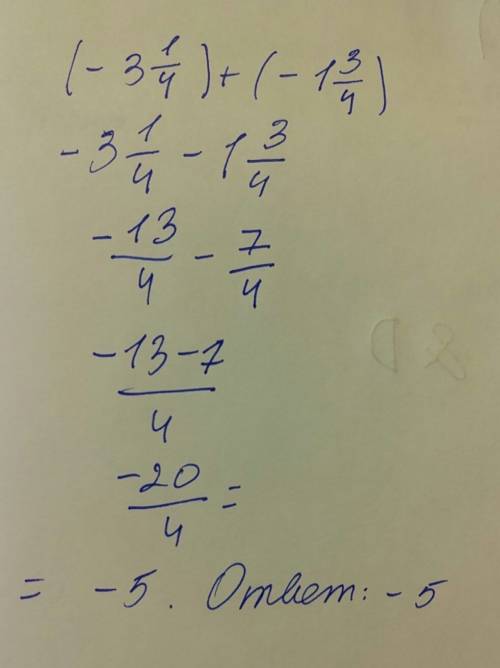 (- 3 1/4) + (- 1 3/4)
- 3 1/4 - 1 3/4
-13/4 - 7/4
-13-7/4
-20/4 =
= -5. Ответ: -5